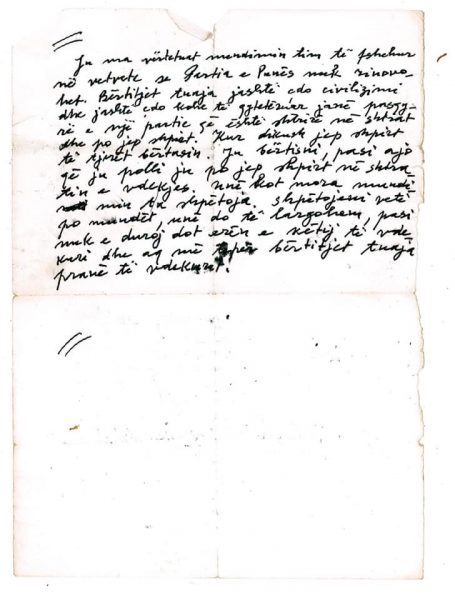 Ju ma vërtetuat mendimin tim të fshehur
në vetvete se Partia e Punës nuk rinovo-
het. Bërtitjet tuaja jashtë çdo civilizimi
dhe jashtë çdo kohe të qytetëruar janë pasqy-
rë e një partie që është shtrirë në shtrat
dhe po jep shpirt. Kur dikush jep shpirt
të tjerët bërtasin. Ju bërtisni, pasi ajo
që ju polli ju po jep shpirt në shtra-
tin e vdekjes. Unë kot mora mundi-
min ta shpëtoja. Shpëtojeni vetë
po mundët, unë do të largohem, pasi
nuk e duroj dot erën e këtij të vde-
kuri dhe aq më tepër bërtitjet tuaja
pranë të vdekurit.